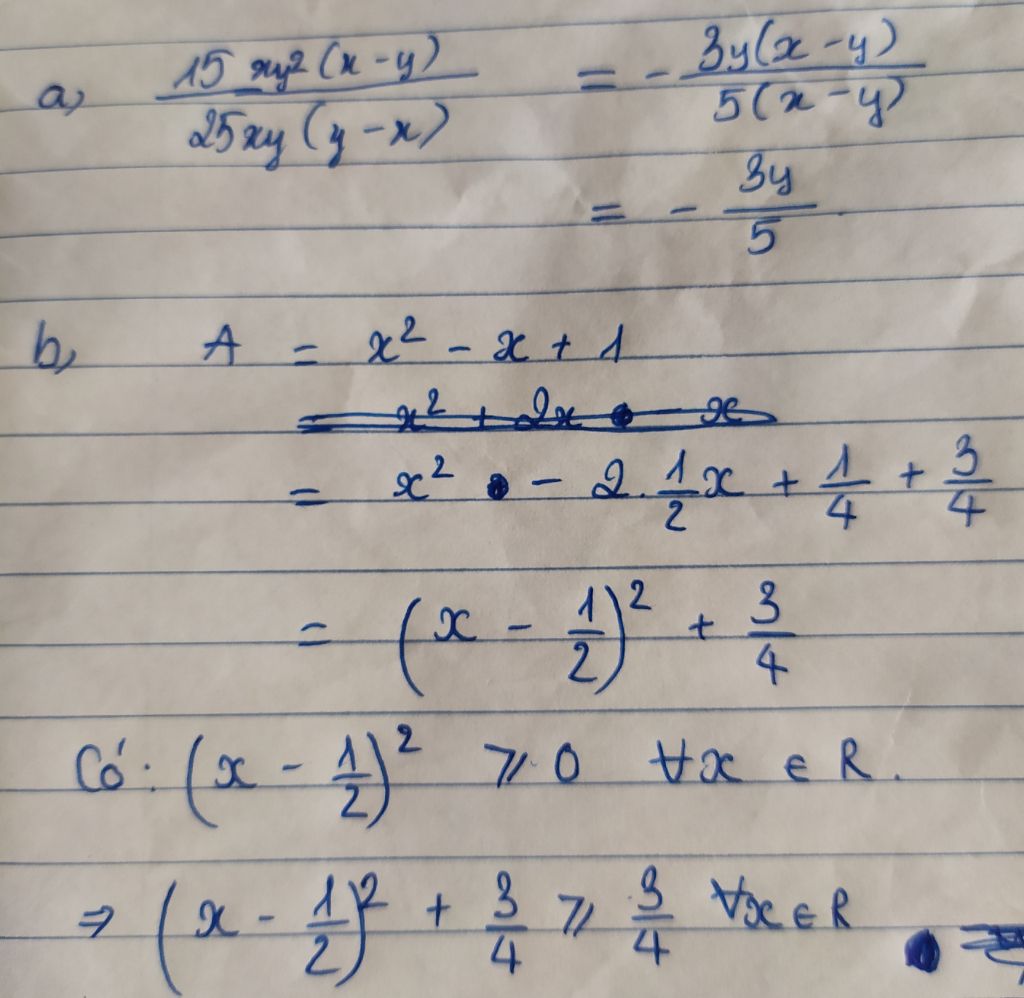 a, \frac{15xy^2(x-y)}{25xy(y-x)} = -\frac{3y(x-y)}{5(x-y)}
= -\frac{3y}{5}
b, A = x^2 - x + 1
= x^2 + 2x x
= x^2 - 2.\frac{1}{2}x + \frac{1}{4} + \frac{3}{4}
= (x - \frac{1}{2})^2 + \frac{3}{4}
Có: (x - \frac{1}{2})^2 ⩾ 0 ∀x ∈ R.
⇒ (x - \frac{1}{2})^2 + \frac{3}{4} ⩾ \frac{3}{4} ∀x ∈ R